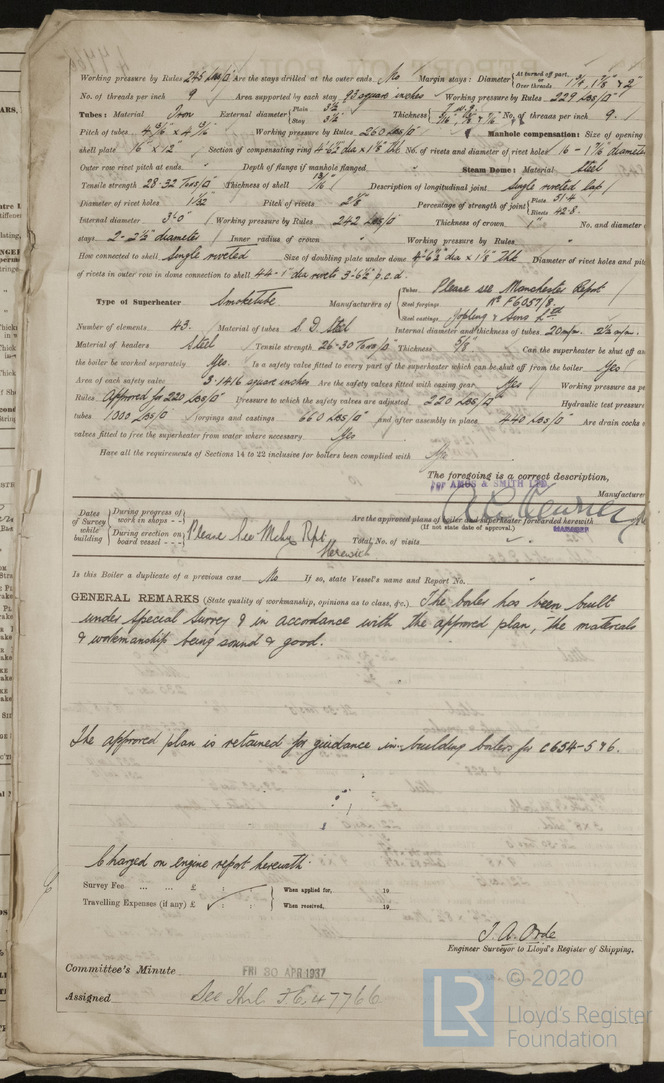 Working pressure by Rules 245 Lbs/□" Are the stays drilled at the outer ends No Margin stays: Diameter { At turned off part, or Over threads 1 3/4, 1 7/8" & 2"
No. of threads per inch 9 Area supported by each stay 93 square inches Working pressure by Rules 229 Lbs/□"
Tubes: Material Iron External diameter { Plain 3½ Stay 3½" Thickness No. of threads per inch 9.
Pitch of tubes 4 3/16 x 4 3/16 Working pressure by Rules 260 Lbs/□" Manhole compensation: Size of opening
shell plate 16" x 12" Section of compensating ring No. of rivets and diameter of rivet holes 16 - 1 7/16 diameter
Outer row rivet pitch at ends " Depth of flange if manhole flanged " Steam Dome: Material Steel
Tensile strength 28-32 Tons/□" Thickness of shell 13/16" Description of longitudinal joint single riveted lap
Diameter of rivet holes 1 1/32 Pitch of rivets 2 1/8 Percentage of strength of joint { Plate 51.4 Rivets 42.8.
Internal diameter 3'-0" Working pressure by Rules 242 Lbs/□" Thickness of crown 1" No. and diameter of
stays 2 - 2½" diameter Inner radius of crown " Working pressure by Rules "
How connected to shell Single riveted Size of doubling plate under dome dia x 1 1/8" thk Diameter of rivet holes and pitch
of rivets in outer row in dome connection to shell 44 - 1" dia rivets 3'-6½" p.c.d.
Type of Superheater Smoketube Manufacturers of { Tubes Please see Manchester Report
Steel forgings No F6057/8.
Steel castings Jobling & Sons Ltd
Number of elements 43. Material of tubes S. D. Steel Internal diameter and thickness of tubes 20m/m. 2½ m/m.
Material of headers Steel Tensile strength 26-30 Tons/□" Thickness 5/8" Can the superheater be shut off and
the boiler be worked separately Yes. Is a safety valve fitted to every part of the superheater which can be shut off from the boiler Yes
Area of each safety valve 3.1416 square inches Are the safety valves fitted with easing gear Yes Working pressure as per
Rules Approved for 220 Lbs/□" Pressure to which the safety valves are adjusted 220 Lbs/□" Hydraulic test pressure
tubes 1000 Lbs/□" forgings and castings 660 Lbs/□" and after assembly in place 440 Lbs/□" Are drain cocks or
valves fitted to free the superheater from water where necessary Yes
Have all the requirements of Sections 14 to 22 inclusive for boilers been complied with
The foregoing is a correct description,
For AMOS & SMITH LTD.
Manufacturer
Dates of Survey while building { During progress of work in shops - -
During erection on board vessel - - - } Please See Mchy Rpt. Herewith
Are the approved plans of boiler and superheater forwarded herewith
(If not state date of approval.)
Total No. of visits "
Is this Boiler a duplicate of a previous case No If so, state Vessel's name and Report No. "
GENERAL REMARKS (State quality of workmanship, opinions as to class, &c.) The boiler has been built
under Special Survey & in accordance with the approved plan, the materials
& workmanship being sound & good.
The approved plan is retained for guidance in building boilers for C654-5 & 6.
Charged on engine report herewith.
Survey Fee ... ... £ : : When applied for, 19
Travelling Expenses (if any) £ : : When received, 19
J. A. Orde
Engineer Surveyor to Lloyd's Register of Shipping.
Committee's Minute FRI 30 APR 1937
Assigned See Hul. F.E. 47766
© 2020
LR
Lloyd's Register
Foundation